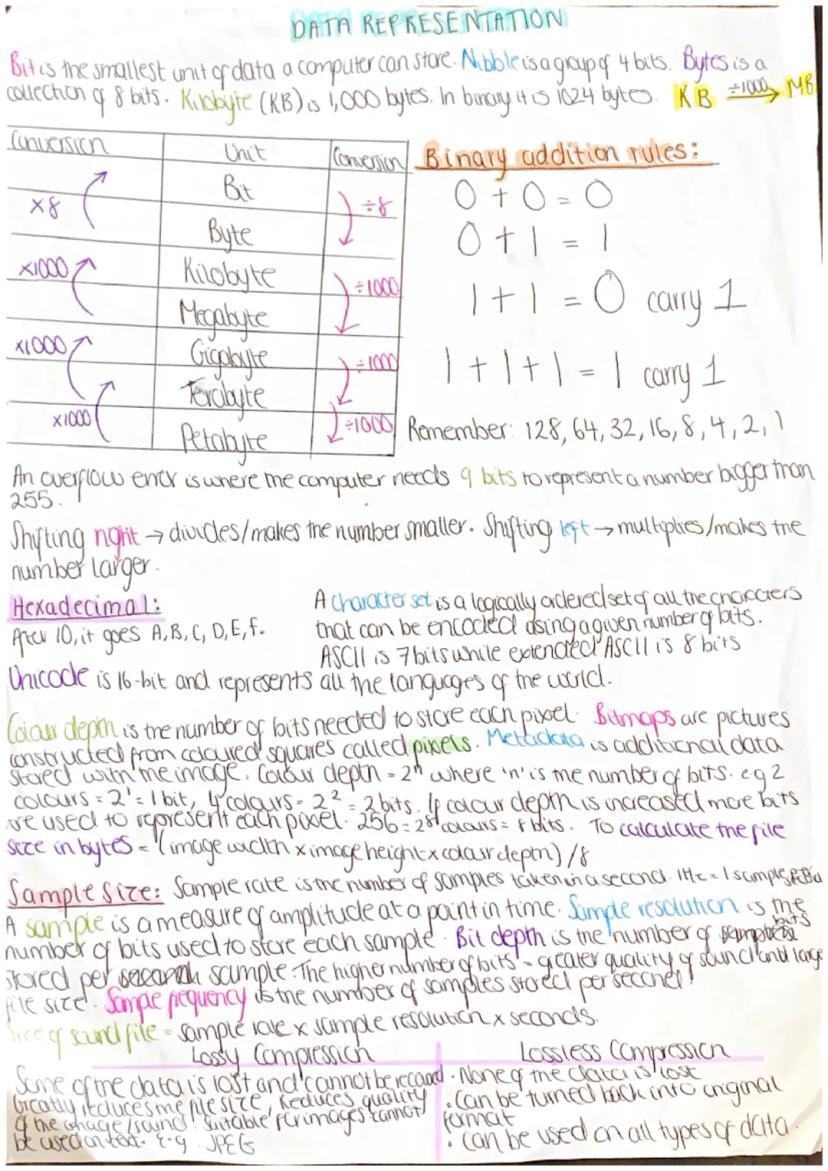 DATA REPRESENTATION
Bit is the smallest unit of data a computer can store. Nibble is a group of 4 bits. Bytes is a
collection of 8 bits. Kilobyte (KB) is 1,000 bytes. In binary it is 1024 bytes. KB ÷1000 → MB
Conversion Unit Conversion
Bit
×8 ÷8
Byte
×1000 Kilobyte ÷1000
Megabyte
×1000 Gigabyte ÷1000
Terabyte
×1000 Petabyte ÷1000
Binary addition rules:
0 + 0 = 0
0 + 1 = 1
1 + 1 = 0 carry 1
1 + 1 + 1 = 1 carry 1
Remember: 128, 64, 32, 16, 8, 4, 2, 1
An overflow error is where the computer needs 9 bits to represent a number bigger than
255.
Shifting right → divides/makes the number smaller. Shifting left → multiplies/makes the
number larger.
Hexadecimal:
After 10, it goes A, B, C, D, E, F.
A character set is a logically ordered set of all the characters
that can be encoded using a given number of bits.
ASCII is 7 bits while extended ASCII is 8 bits
Unicode is 16-bit and represents all the languages of the world.
Colour depth is the number of bits needed to store each pixel. Bitmaps are pictures
constructed from coloured squares called pixels. Metadata is additional data
stored with the image. Colour depth = 2ⁿ where 'n' is the number of bits. e.g 2
colours = 2¹ = 1 bit, 4 colours = 2² = 2 bits. If colour depth is increased more bits
are used to represent each pixel. 256 = 2⁸ colours = 8 bits. To calculate the file
size in bytes = (image width × image height × colour depth) / 8
Sample Size: Sample rate is the number of samples taken in a second. 1Hz = 1 sample
A sample is a measure of amplitude at a point in time. Sample resolution is the
number of bits used to store each sample. Bit depth is the number of bits
stored per sample. The higher number of bits = greater quality of sound and large
file size. Sample frequency is the number of samples stored per second!
Size of sound file = sample rate x sample resolution x seconds.
Lossy Compression
Some of the data is lost and cannot be
Greatly reduces the file size, Reduces quality
of the image/sound. Suitable for images cannot
be used on text. E.g. JPEG
Lossless Compression
· None of the data is lost
· Can be turned back into original
format
· Can be used on all types of data.